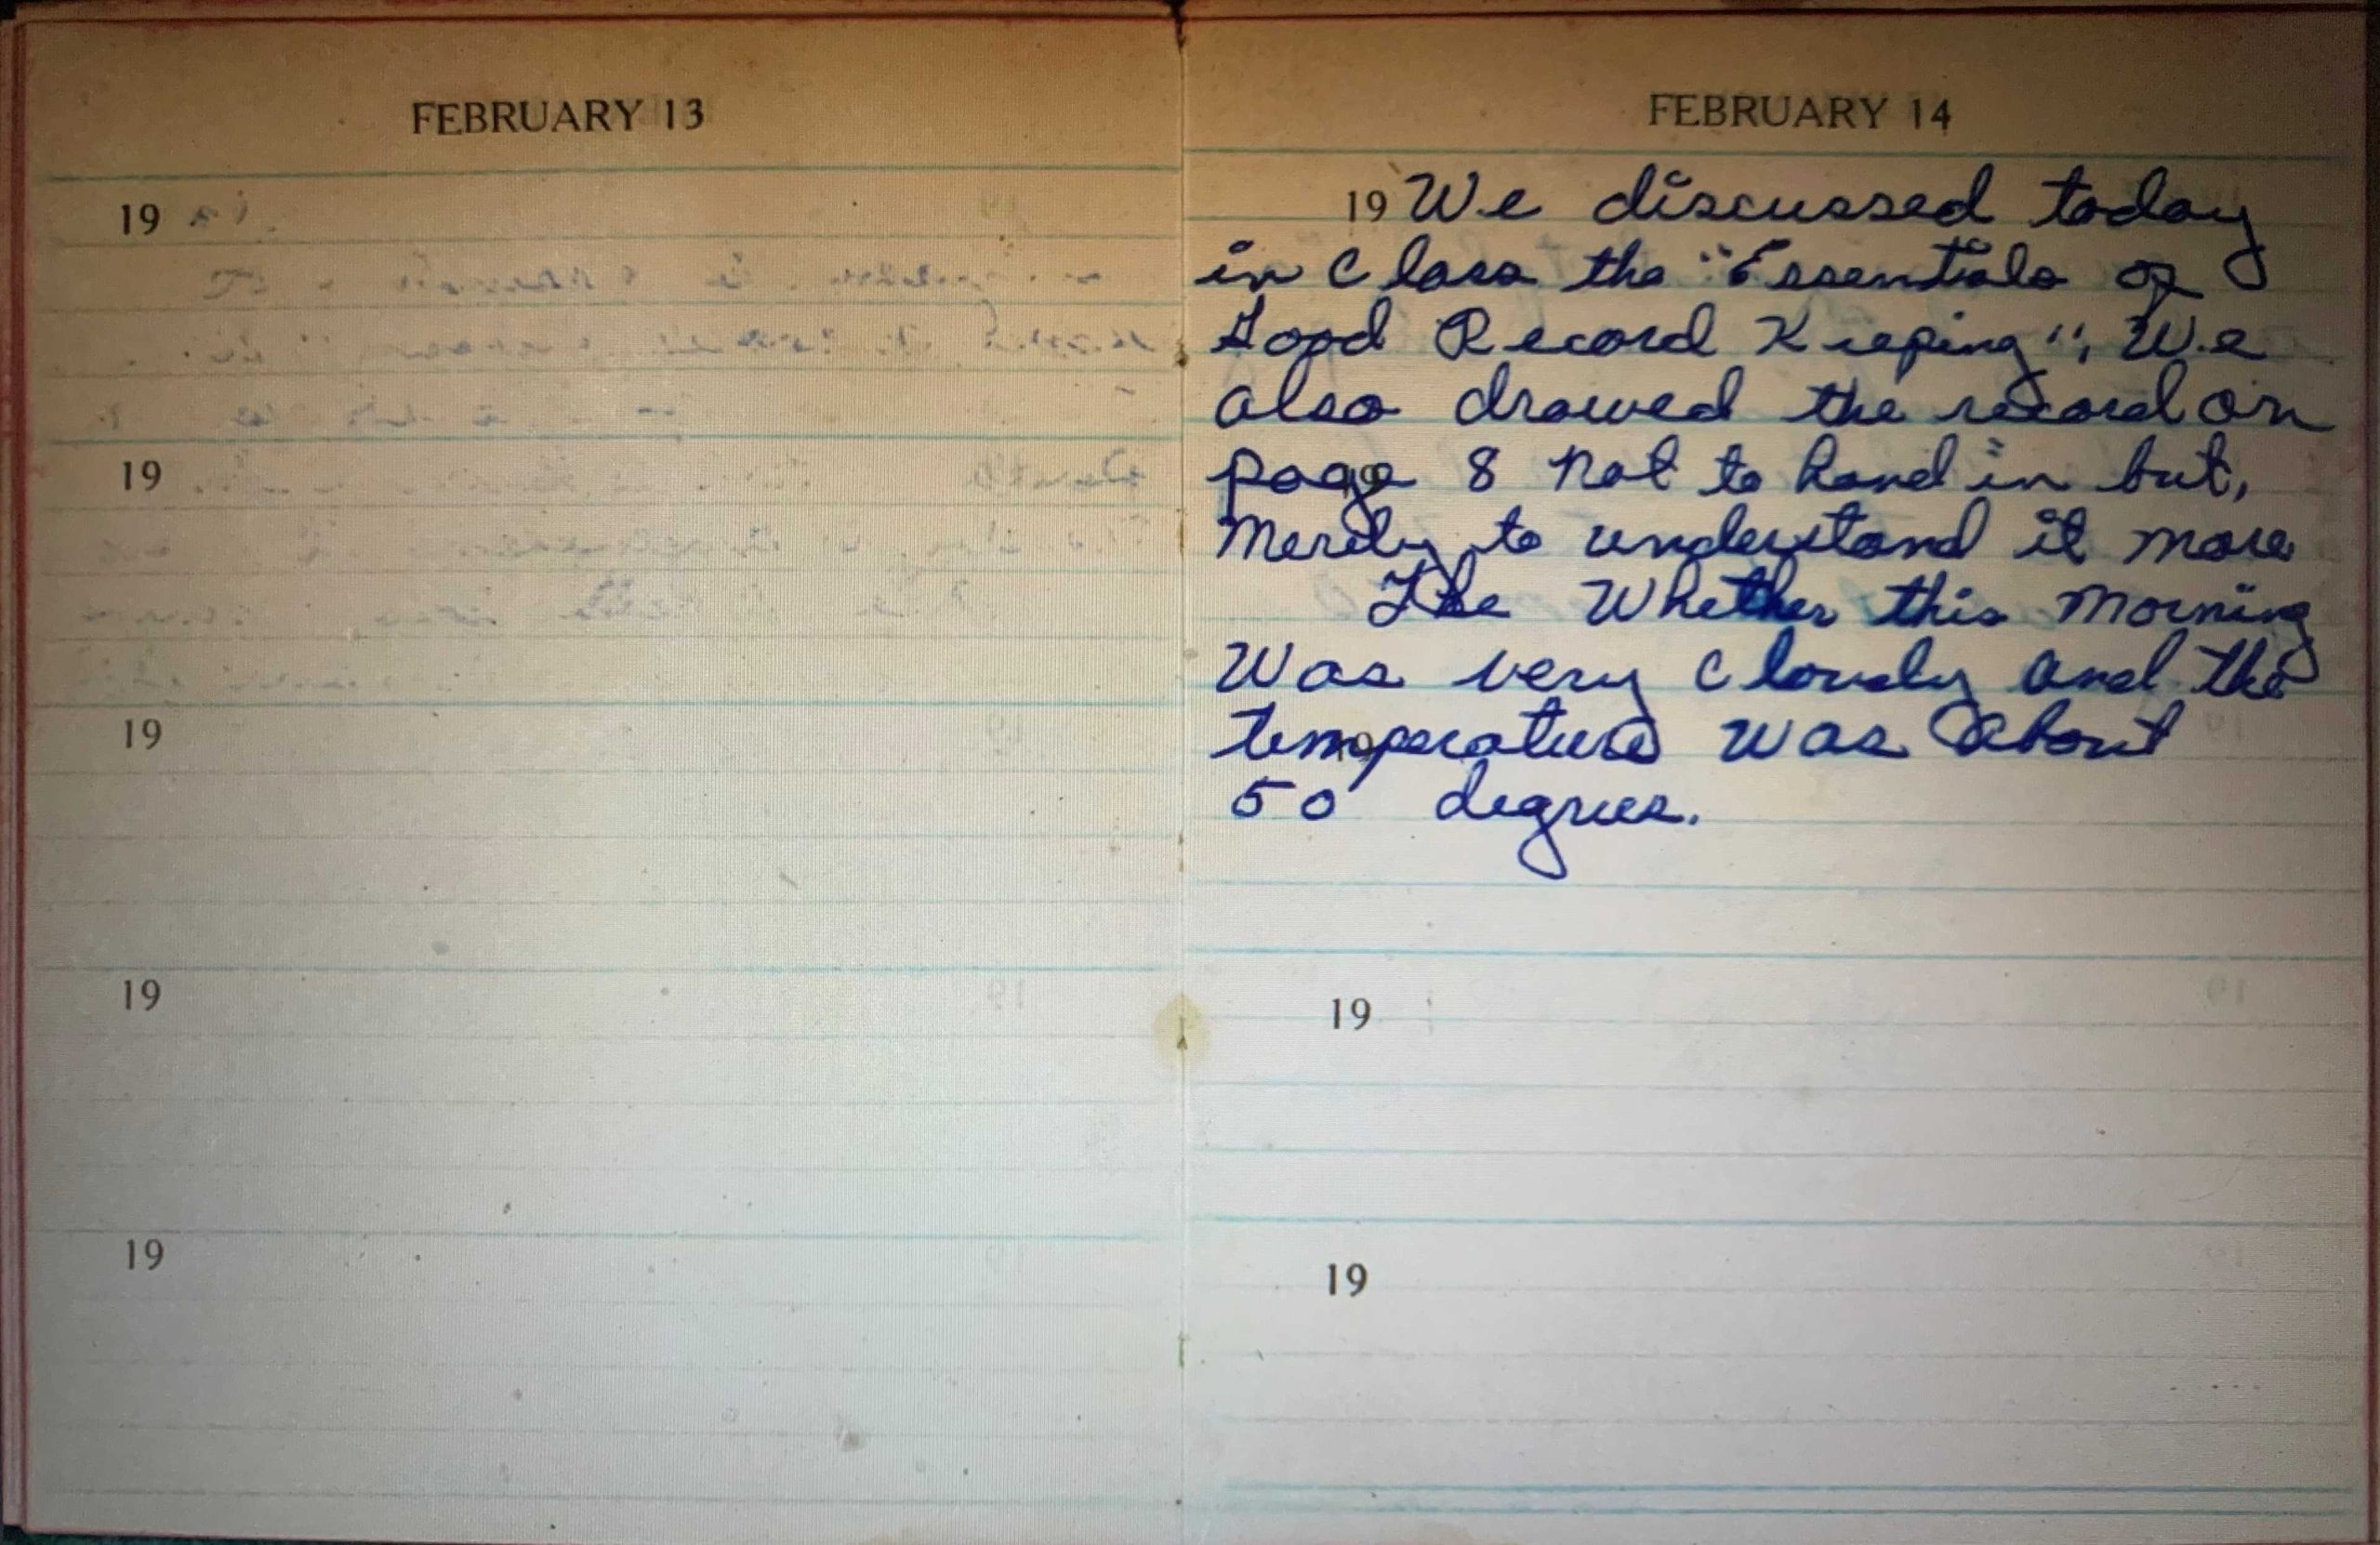 FEBRUARY 13
19
19
19
19
19
FEBRUARY 14
19 We discussed today
in Class the "Essentials of
Good Record Keeping", We
also drawed the record on
page 8 not to hand in but,
Merely to understand it more
The Whether this Morning
Was very Cloudy and the
temperature was about
50 degrees.
19
19